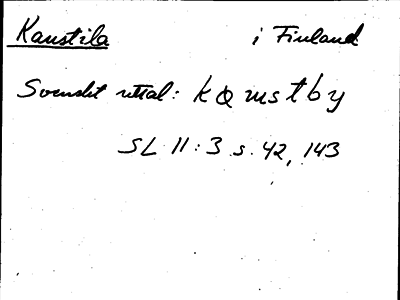 Kaustila i Finland
Svenskt uttal: kɑmstby
SL 11:3 s. 42, 143